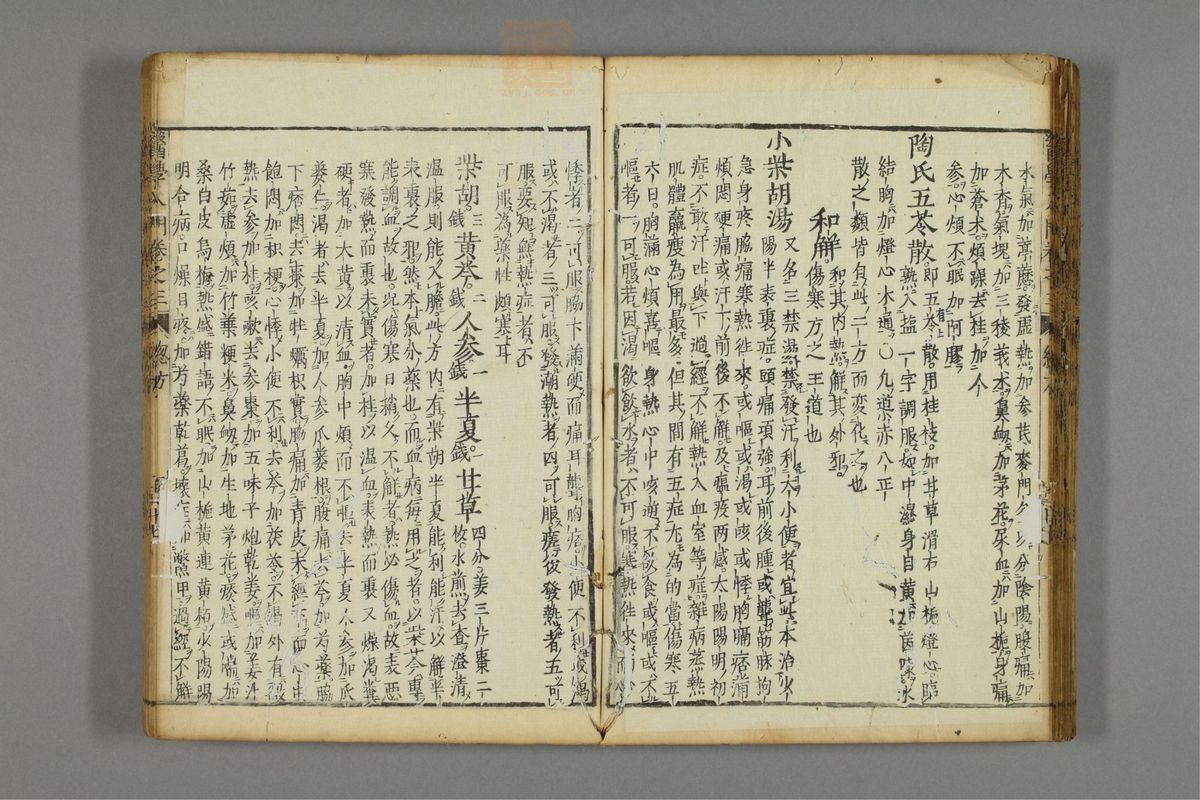 水氣加葶藶發虛熱加參芪麥門冬以分陰陽腹痛加
木香氣塊加三稜莪朮鼻衄加茅花尿血加山梔身痛
加蒼朮煩躁去桂加人
參心煩不眠加阿膠
陶氏五苓散即五苓散用桂枝加甘草滑石山梔燈心臨
熟入鹽一字調服如中濕身目黃加茵陳水
結胸加燈心木通〇九道赤八正
散之類皆自此二方而變化之也
和解和其内熱解其外邪
傷寒方之王道也
小柴胡湯又名三禁湯禁發汗利大小便者宜此本治少
陽半表裏症頭痛項強耳前後腫或聾筋脉拘
急身疼脇痛寒熱往來或嘔或渴或咳或悸胸膈痞滿
煩悶硬痛或汗下前後不解及瘟疫兩感太陽陽明初
症不敢汗吐與下過經不解熱入血室等症雜病蒸熱
肌體羸瘦為用最多但其間有五症尤為的當傷寒五
六日胸滿心煩喜嘔身熱心中咳逆不欲食或嘔或不
嘔者一可服若因渴欲飲水者不可服寒熱徃來而心
悸者二可服脇下滿硬而痛耳聾胸痞小便不利或渴
或不渴者三可服發潮熱者四可服瘥後發熱者五可
服要知無熱症者不
可服為藥性頗寒耳
柴胡三錢黃芩二錢人參一錢半夏一錢甘草四分姜三片棗二
枚水煎去查澄清
温服則能入膽此方内有柴胡半夏能利能汗以解半
表裏之邪然本氣分藥也而血病每用之者以柴芩專
能調血故也兇傷寒日稍久不解者熱必傷血故表惡
寒發熱而裏未實者加桂以温血表熱而裏又燥渴糞
硬者加大黃以清血胸中煩而不嘔去半夏人參加瓜
蔞仁渴者去半夏加人參瓜蔞根腹痛去芩加芍藥脇
下痞悶去棗加牡蠣枳實脇痛加青皮未經下而心中
飽悶加枳梗心悸小便不利去芩加茯苓不渴外有微
熱去參加桂咳嗽去參棗加五味子炮乾姜嘔加姜汁
竹茹虛煩加竹葉粳米鼻衄加生地茅花痰盛或喘加
桑白皮烏梅熱盛錯語不眠加山梔黃連黃栢少陽陽
明合病口燥目疼加芍藥乾葛壞症加鱉甲過經不解